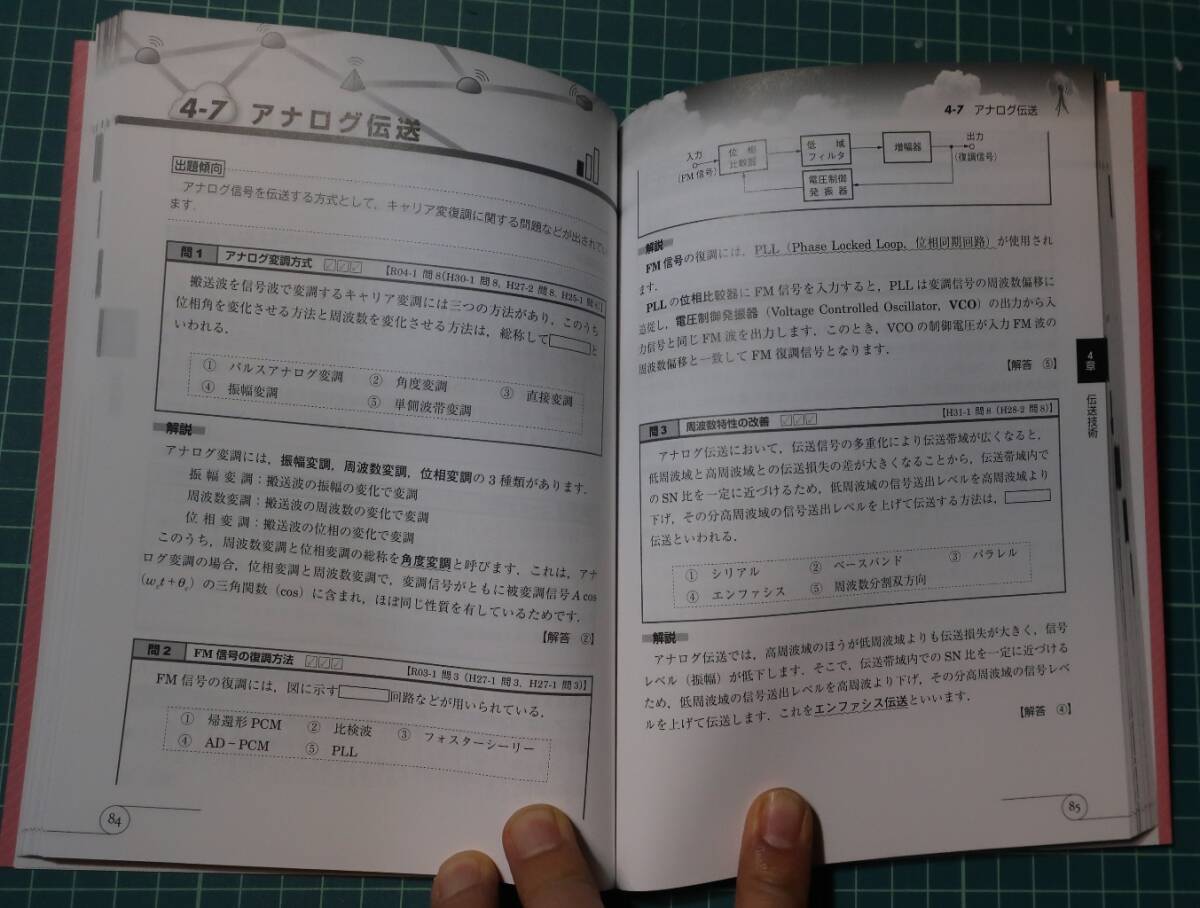 4-7 アナログ伝送
出題傾向
アナログ信号を伝送する方式として，キャリア変復調に関する問題などが出されてい
ます．
問1 アナログ変調方式
【R04-1 問8(H30-1 問8, H27-2 問8, H25-1
搬送波を信号波で変調するキャリア変調には三つの方法があり，このうち
位相角を変化させる方法と周波数を変化させる方法は，総称して と
いわれる．
① パルスアナログ変調 ② 角度変調 ③ 直接変調
④ 振幅変調 ⑤ 単側波帯変調
解説
アナログ変調には，振幅変調，周波数変調，位相変調の3種類があります．
振幅変調：搬送波の振幅の変化で変調
周波数変調：搬送波の周波数の変化で変調
位相変調：搬送波の位相の変化で変調
このうち，周波数変調と位相変調の総称を角度変調と呼びます．これは，アナ
ログ変調の場合，位相変調と周波数変調で，変調信号がともに被変調信号 A cos
(w_c t+θ_c) の三角関数（cos）に含まれ，ほぼ同じ性質を有しているためです．
【解答 ②】
問2 FM信号の復調方法
【R03-1 問3（H27-1 問3，H27-1 問3)】
FM信号の復調には，図に示す 回路などが用いられている．
① 帰還形PCM ② 比検波 ③ フォスターシーリー
④ AD－PCM ⑤ PLL
84
4-7 アナログ伝送
入力
(FM信号)
位相
比較器
低域
フィルタ
増幅器
出力
(復調信号)
電圧制御
発振器
解説
FM信号の復調には，PLL（Phase Locked Loop，位相同期回路）が使用され
ます．
PLLの位相比較器にFM信号を入力すると，PLLは変調信号の周波数偏移に
追従し，電圧制御発振器（Voltage Controlled Oscillator，VCO）の出力から入
力信号と同じFM波を出力します．このとき，VCOの制御電圧が入力FM波の
周波数偏移と一致してFM復調信号となります．
【解答 ⑤】
4章
伝送技術
問3 周波数特性の改善
【H31-1 問8（H28-2 問8)】
アナログ伝送において，伝送信号の多重化により伝送帯域が広くなると，
低周波域と高周波域との伝送損失の差が大きくなることから，伝送帯域内で
のSN比を一定に近づけるため，低周波域の信号送出レベルを高周波域より
下げ，その分高周波域の信号送出レベルを上げて伝送する方法は，
伝送といわれる．
① シリアル ② ベースバンド ③ パラレル
④ エンファシス ⑤ 周波数分割双方向
解説
アナログ伝送では，高周波域のほうが低周波域よりも伝送損失が大きく，信号
レベル（振幅）が低下します．そこで，伝送帯域内でのSN比を一定に近づける
ため，低周波域の信号送出レベルを高周波より下げ，その分高周波域の信号レベ
ルを上げて伝送します．これをエンファシス伝送といいます．
【解答 ④】
85